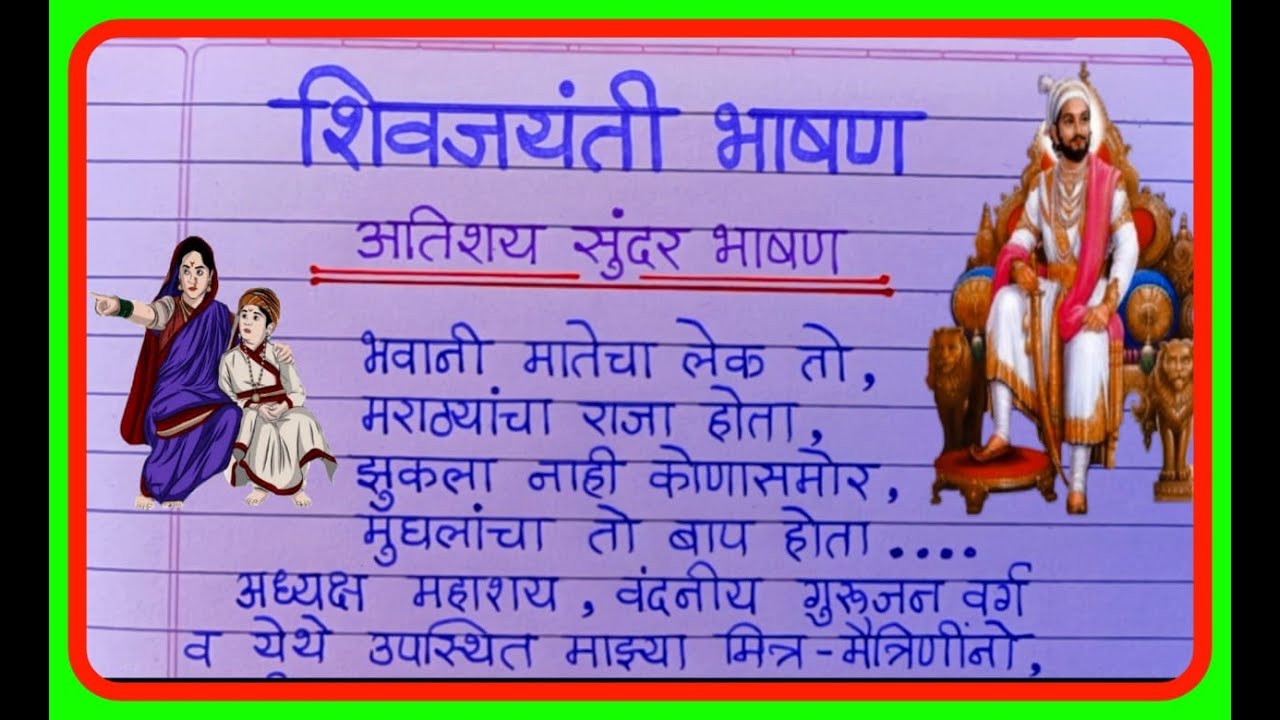 शिवजयंती भाषण
अतिशय सुंदर भाषण
भवानी मातेचा लेक तो,
मराठ्यांचा राजा होता,
झुकला नाही कोणासमोर,
मुघलांचा तो बाप होता....
अध्यक्ष महाशय, वंदनीय गुरूजन वर्ग
व येथे उपस्थित माझ्या मित्र-मैत्रिणींनो,